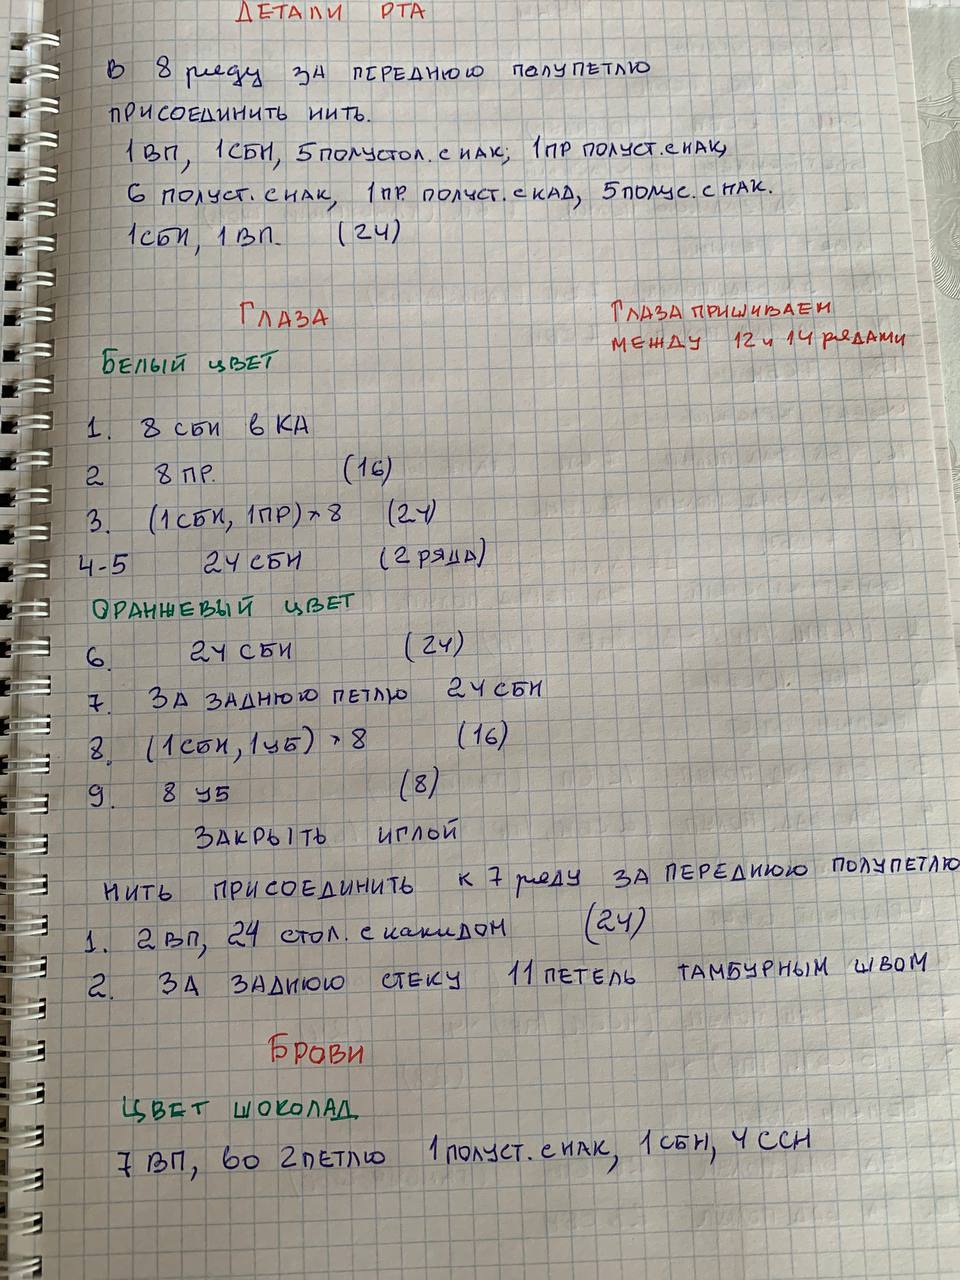 ДЕТАЛИ РТА
В 8 ряду ЗА ПЕРЕДНЮЮ ПОЛУПЕТЛЮ
ПРИСОЕДИНИТЬ НИТЬ.
1ВП, 1СБН, 5ПОЛУСТОЛ. С НАК; 1ПР ПОЛУСТ. С НАК,
6 ПОЛУСТ. С НАК, 1ПР. ПОЛУСТ. С КАД, 5 ПОЛУС. С НАК.
1СБН, 1ВП. (24)
ГЛАЗА
ГЛАЗА ПРИШИВАЕМ
МЕЖДУ 12 и 14 рядами
БЕЛЫЙ ЦВЕТ
1. 8 СБН в КА
2 8 ПР. (16)
3. (1СБН, 1ПР)*8 (24)
4-5 24 СБН (2 РЯДА)
ОРАНЖЕВЫЙ ЦВЕТ
6. 24 СБН (24)
7. ЗА ЗАДНЮЮ ПЕТЛЮ 24 СБН
8. (1СБН, 1УБ) * 8 (16)
9. 8 УБ (8)
ЗАКРЫТЬ ИГЛОЙ
НИТЬ ПРИСОЕДИНИТЬ К 7 ряду ЗА ПЕРЕДНЮЮ ПОЛУПЕТЛЮ
1. 2ВП, 24 СТОЛ. С НАКИДОМ (24)
2. ЗА ЗАДНЮЮ СТЕКУ 11 ПЕТЕЛЬ ТАМБУРНЫМ ШВОМ
БРОВИ
ЦВЕТ ШОКОЛАД
7 ВП, во 2 ПЕТЛЮ 1 ПОЛУСТ. С НАК, 1 СБН, 4 ССН